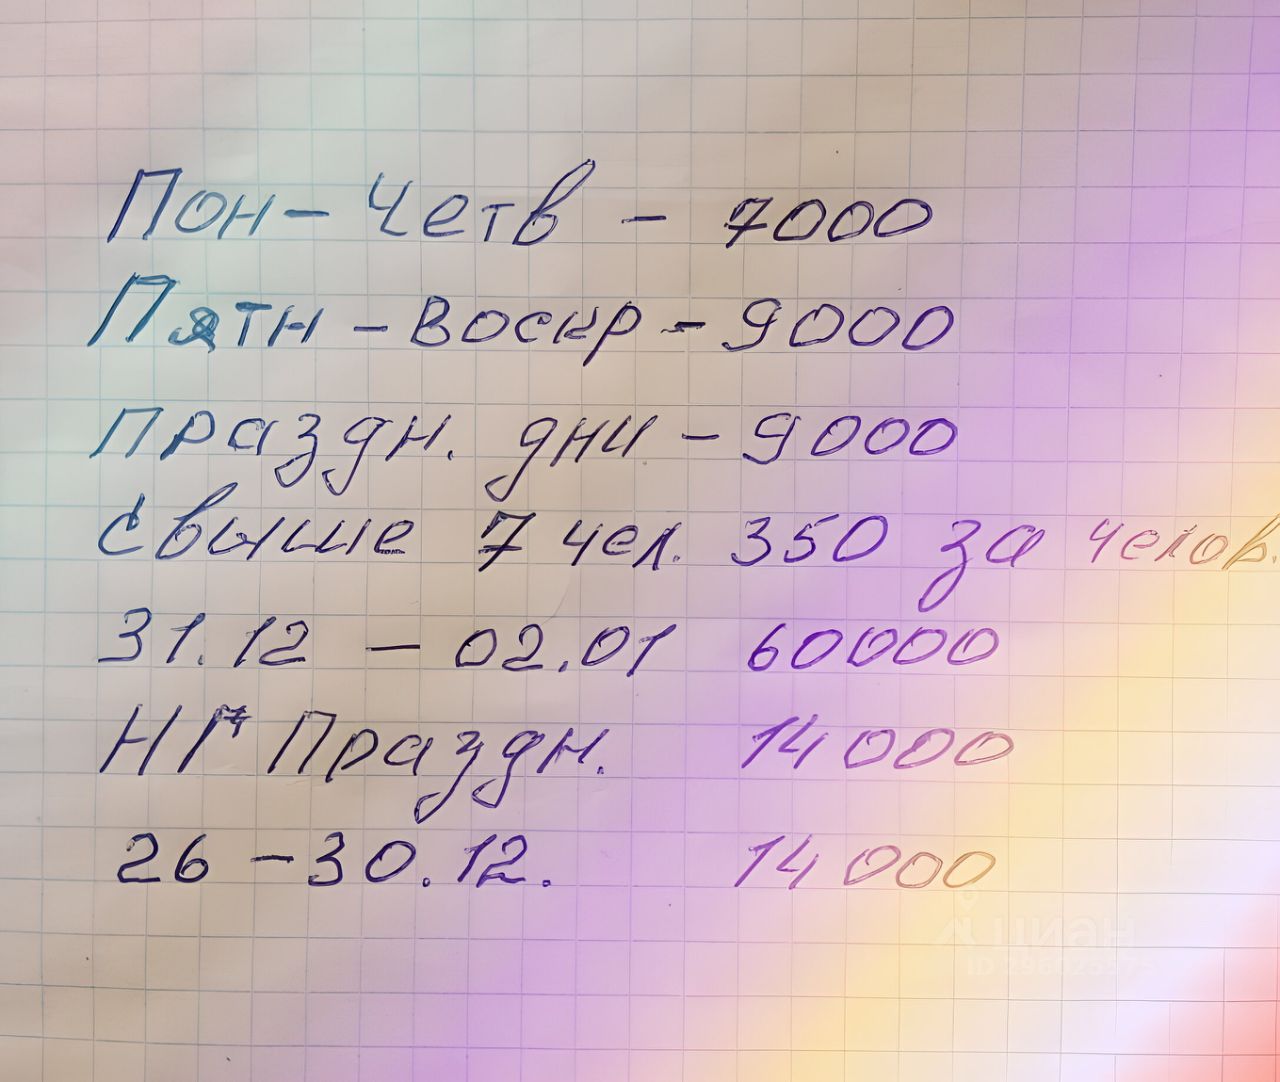 Пон - Четв - 7000
Пятн - Воскр - 9000
празdн. дни - 9000
Свыше 7 чел. 350 за челов.
31.12 - 02.01 60000
НГ Праздн. 14000
26 - 30.12. 14000
циан